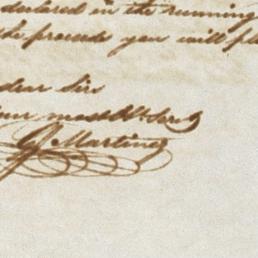 declared in the running
you will
dear Sir
your most Obt Serv
G Martin